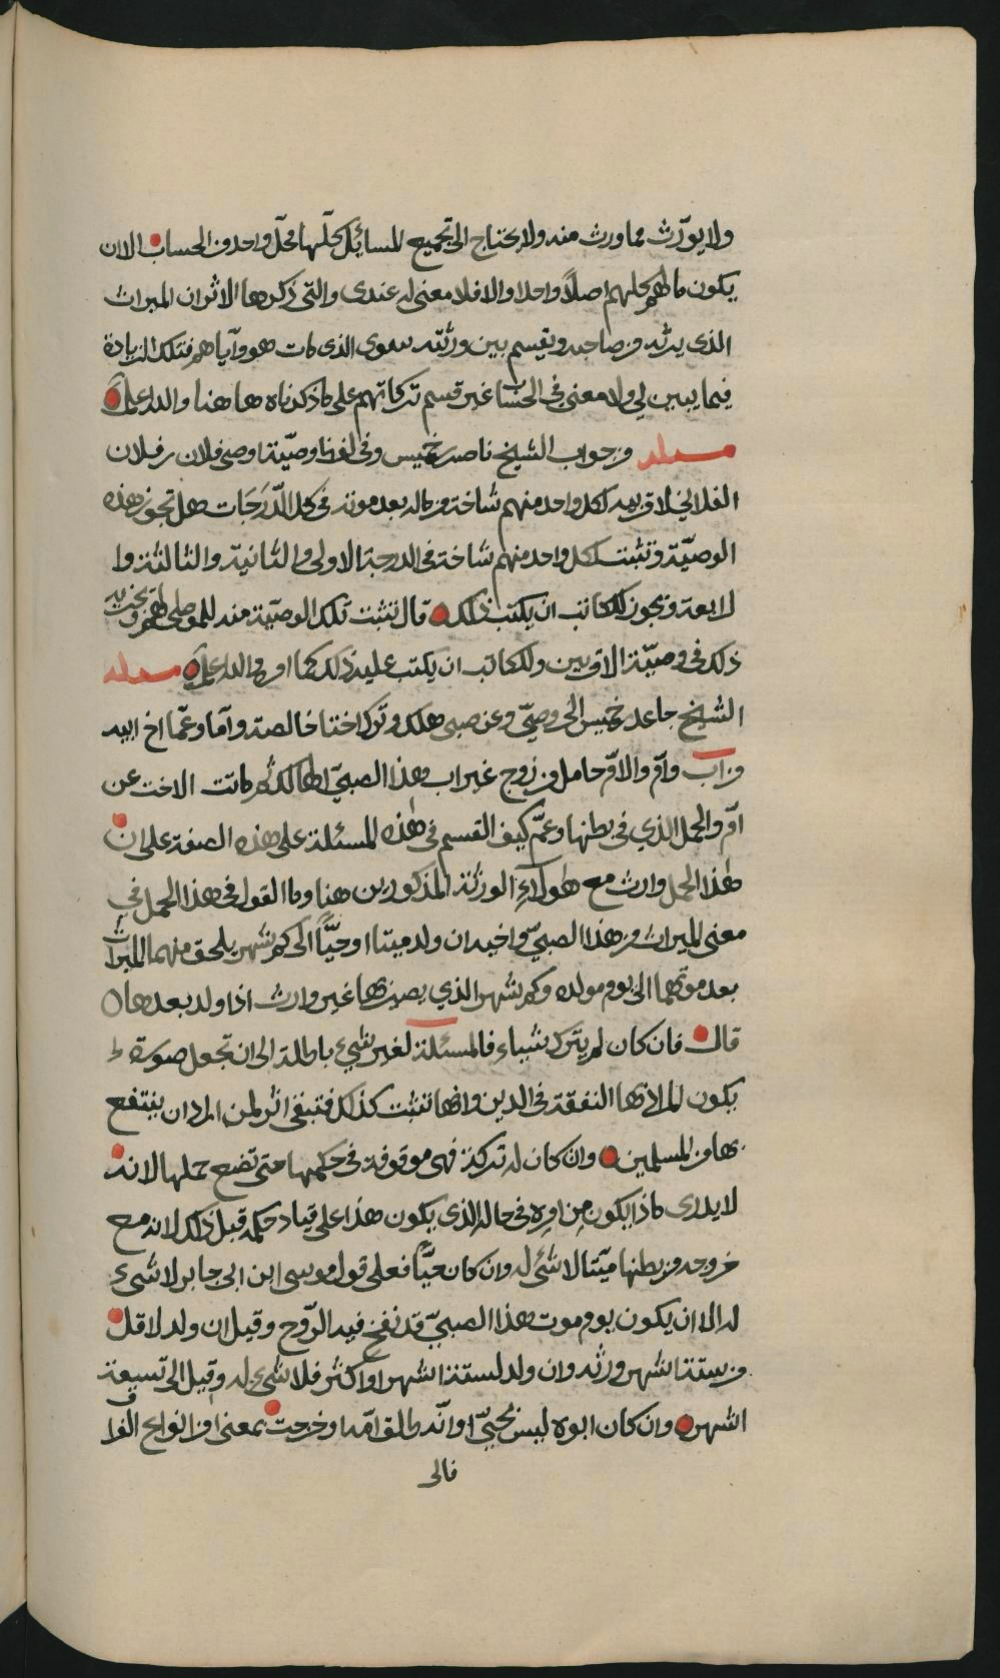 ولا يورّث مما ورث منه ولا يحتاج الى تجميع المسائل كلّها محلّ واحد في الحساب الا ان
يكون مالهم كلهم اصلاً واحدا والا فلا معنى له عندى والتى ذكرها الاثر ان الميراث
الذى يرثه من صاحبه ويقسم بين ورثته سوى الذى مات هو واياهم فتلك الزيادة
فيما يبين لى ولا معنى فى الحساب غير قسم تركاتهم على ما ذكرناه ها هنا والله اعلم
مسئلة من جواب الشيخ ناصر بن خميس وفى لفظ وصيّة اوصى فلان بن فلان
الفلاني لاقربيه لكل واحد منهم شاخة من ماله بعد موته فى كل الدّرجات هل تجوز هذه
الوصيّة وتثبت لكل واحد منهم شاخة فى الدرجة الاولى والثانية والثالثة والـ
لابعة ويجوز للكاتب ان يكتب ذلك قال تثبت تلك الوصيّة منه للموصى لهم ويجرى به
ذلك فى وصيّة الاقربين وللكاتب ان يكتب عليه ذلك كما امره والله اعلم مسئلة
الشيخ جاعد بن خميس الخروصيّ وعن صبى هلك وترك اختا خالصة وآما وعمّا اخ ابيه
من اب وامّ والامّ حامل من زوج غير اب هذا الصبيّ الهالك ثم ماتت الاخت عن
امّ والحمل الذي فى بطنها وعمّ كيف القسم فى هذه المسئلة على هذه الصفة على ان
هذا الحمل وارث مع هولاء الورثة المذكورين هنا وما القول فى هذا الحمل في
معنى الميراث من هذا الصبيّ واخيه ان ولد ميتا او حيّاً الى كم شهر يلحق منهما الميراث
بعد موتهما الى يوم مولده وكم شهر الذي يصير بها غير وارث اذا ولد بعدها
قال فان كان لم يترك شياء فالمسئلة لغير شيء باطلة الى ان تجعل صورة لـ
يكون المراد بها التفقة فى الدين وانها تثبت كذلك فتبقى اثر لمن اراد ان ينتفع
بها من المسلمين وان كان له تركة فهى موقوفة فى حكمها متى تضع حملها لانه
لا يدرى ماذا يكون من امره فى حاله الذى يكون هذا على قياد حكمه قبل ذلك لانه مع
خروجه من بطنها ميّتا لا شئ له وان كان حيّاً فعلى قول موسى ابن ابى جابر لا شىء
له الا ان يكون يوم موت هذا الصبيّ قد نفخ فيه الرّوح وقيل ان ولد لاقل
من ستة اشهر ورثه وان ولد لستة اشهر او اكثر فلا شىء له وقيل الى تسعة
اشهر وان كان ابوه ليس بحيّ او انّه طلق امّه او خرجت بمعنى من انواع الفرا
فالى